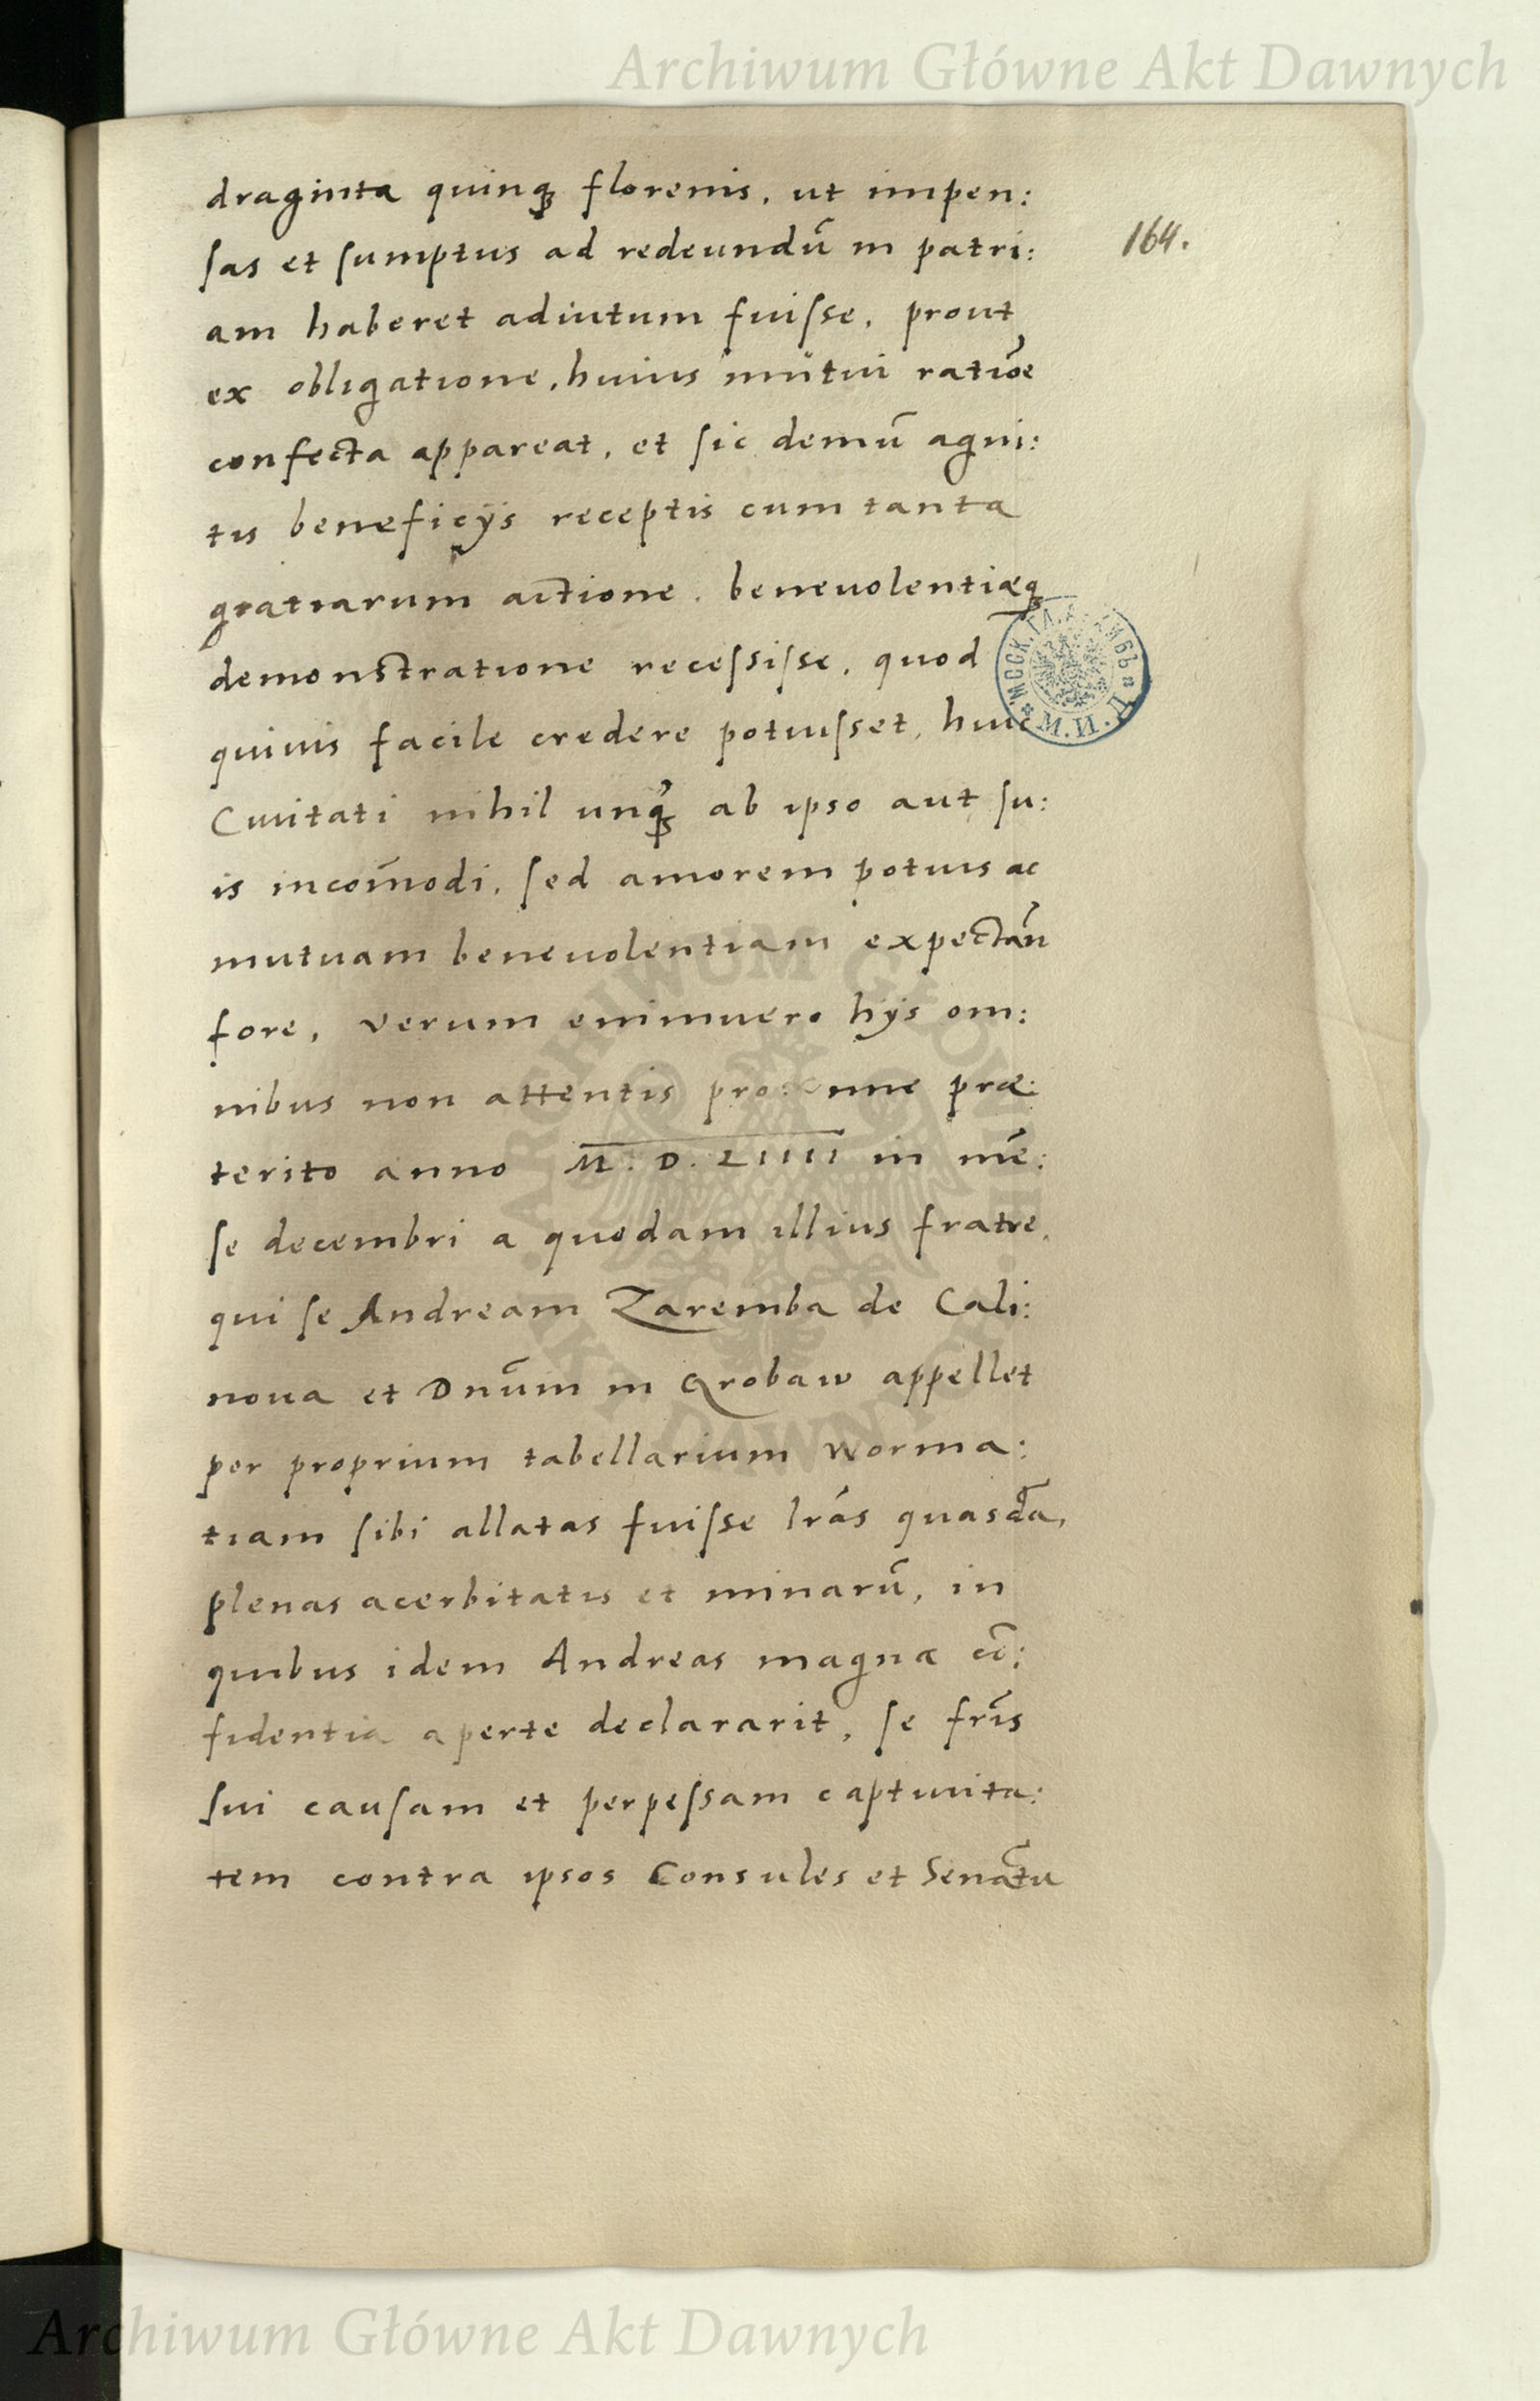 Archiwum Główne Akt Dawnych
164.
draginta quinq̃ florenis, ut impen:
ſas et ſumptus ad redeundũ in patri:
am haberet adiutum fuiſse, prout
ex obligatione, huius mutui ratiõe
confecta appareat, et ſic demũ agni:
tis beneficijs receptis cum tanta
gratiarum actione, benevolentiæq̃
demonstratione receſsiſse, quod
quiuis facile credere potuiſset, huic
Ciuitati nihil unq̃ ab ipso aut ſu:
is incom̃odi, ſed amorem potius ac
mutuam beneuolentiam expectãn
fore, verum enimuero hijs om:
nibus non attentis præ:
terito anno M. D. LIIII in mẽ:
ſe decembri a quodam illius fratre,
qui ſe Andream Zaremba de Cali:
noua et Dnũm in Grobaw appellet
per proprium tabellarium worma:
tiam ſibi allatas fuiſse lrãs quasdã,
plenas acerbitatis et minarũ, in
quibus idem Andreas magna cõ:
fidentia aperte declararit, ſe frĩs
ſui cauſam et perpeſsam captiuita:
tem contra ipsos Consules et Senãtu
МССК. ГЛ. АРХИВЪ
М.И.Д.
ARCHIWUM GŁÓWNE AKT DAWNYCH
Archiwum Główne Akt Dawnych